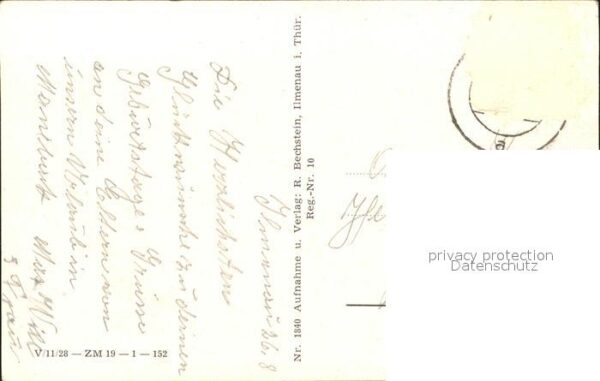 Ilmenau 26. 8
Die Herzlichsten
Glückwünsche zu deinen
Geburtstage & Grüsse
an deine Eltern von
unsern Urlaub in
Max Will
& Frau
Nr. 1840 Aufnahme u. Verlag: R. Bechstein, Ilmenau i. Thür.
Reg.-Nr. 10
V/11/28 — ZM 19 — 1 — 152
privacy protection
Datenschutz